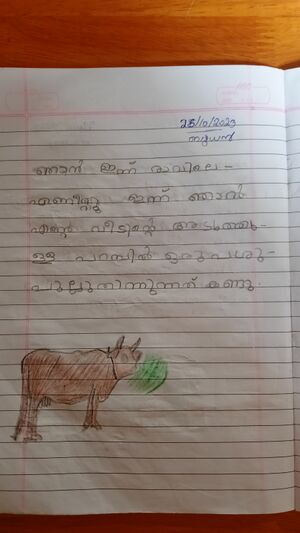 25/10/2023
ബുധൻ
ഞാൻ ഇന്ന് രാവിലെ -
എണീറ്റു ഇന്ന് ഞാൻ
എന്റെ വീടിന്റെ അടുത്തു -
ള്ള പറമ്പിൽ ഒരു പശു -
പുല്ലുതിന്നുന്നത് കണ്ടു.